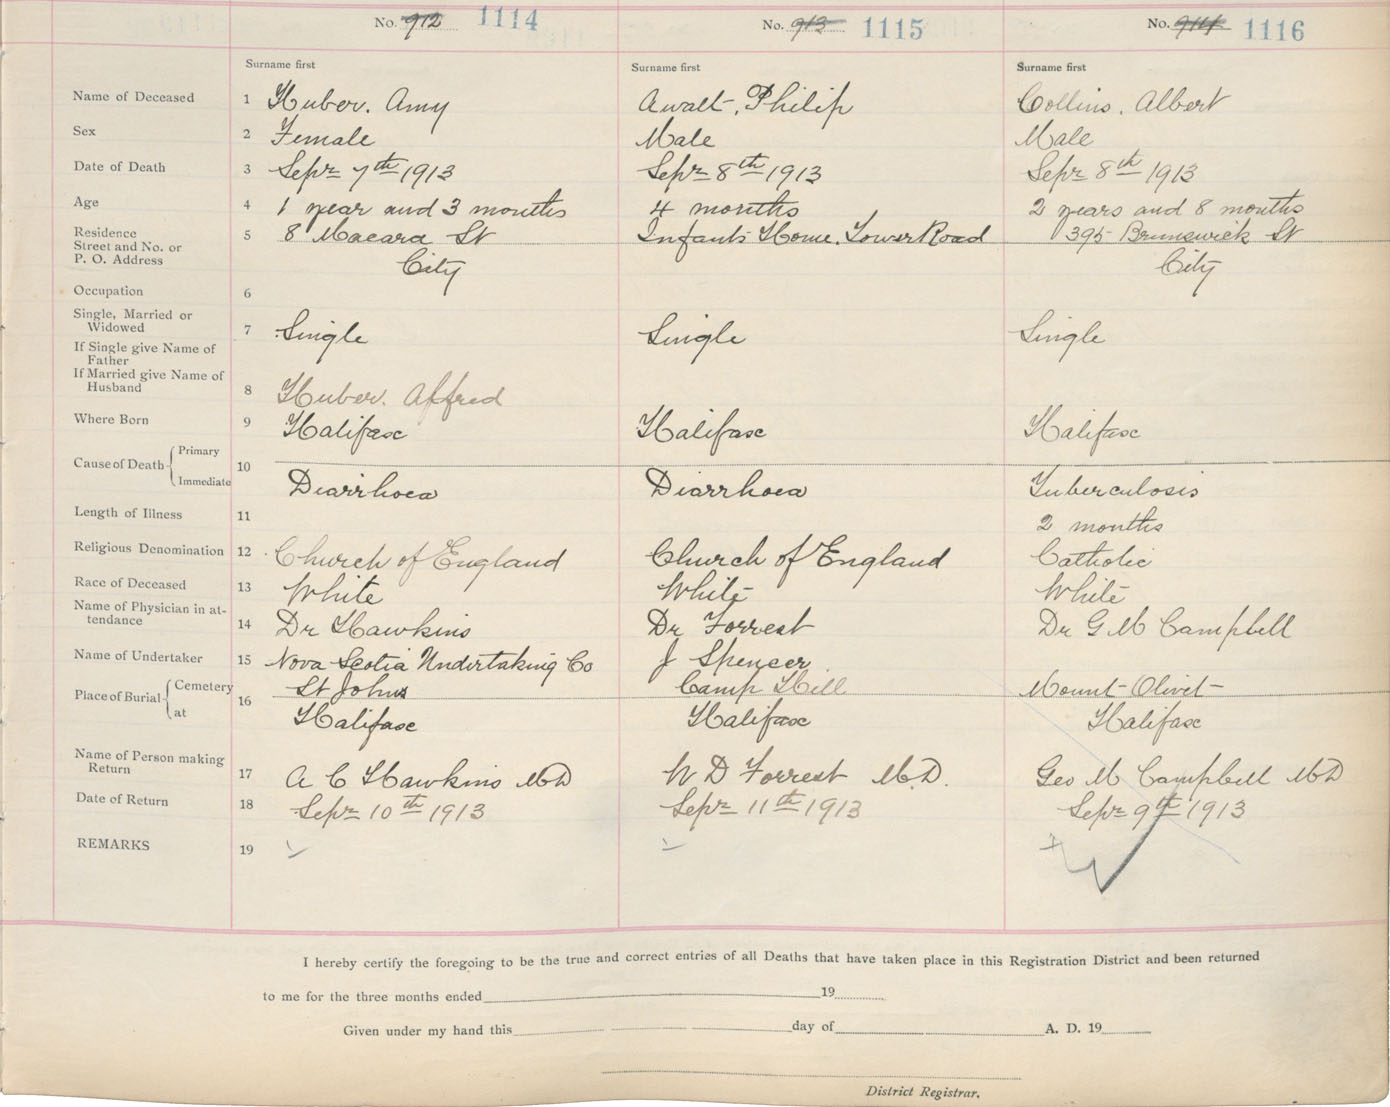 No. 912 1114 No. 913 1115 No. 914 1116
Surname first Surname first Surname first
Name of Deceased 1 Huber. Amy Awalt, Philip Collins, Albert
Sex 2 Female Male Male
Date of Death 3 Sepr 7th 1913 Sepr 8th 1913 Sepr 8th 1913
Age 4 1 year and 3 months 4 months 2 years and 8 months
Residence
Street and No. or 5 8 Macara St Infants Home. Tower Road 395 Brunswick St
P. O. Address City City
Occupation 6
Single, Married or
Widowed 7 Single Single Single
If Single give Name of
Father
If Married give Name of
Husband 8 Huber. Alfred
Where Born 9 Halifax Halifax Halifax
Cause of Death Primary 10
Immediate Diarrhoea Diarrhoea Tuberculosis
Length of Illness 11 2 months
Religious Denomination 12 Church of England Church of England Catholic
Race of Deceased 13 White White White
Name of Physician in at-
tendance 14 Dr Hawkins Dr Forrest Dr G M Campbell
Name of Undertaker 15 Nova Scotia Undertaking Co J Spencer
Place of Burial Cemetery 16 St Johns Camp Hill Mount Olivet
at Halifax Halifax Halifax
Name of Person making
Return 17 A C Hawkins MD W D Forrest M.D. Geo M Campbell MD
Date of Return 18 Sepr 10th 1913 Sepr 11th 1913 Sepr 9th 1913
REMARKS 19
I hereby certify the foregoing to be the true and correct entries of all Deaths that have taken place in this Registration District and been returned
to me for the three months ended 19
Given under my hand this day of A. D. 19
District Registrar.